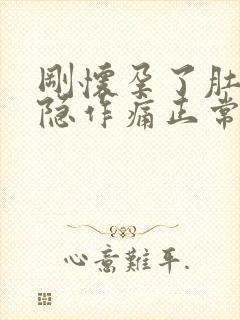 刚懷孕了肚
隐作痛正常
心意難平.